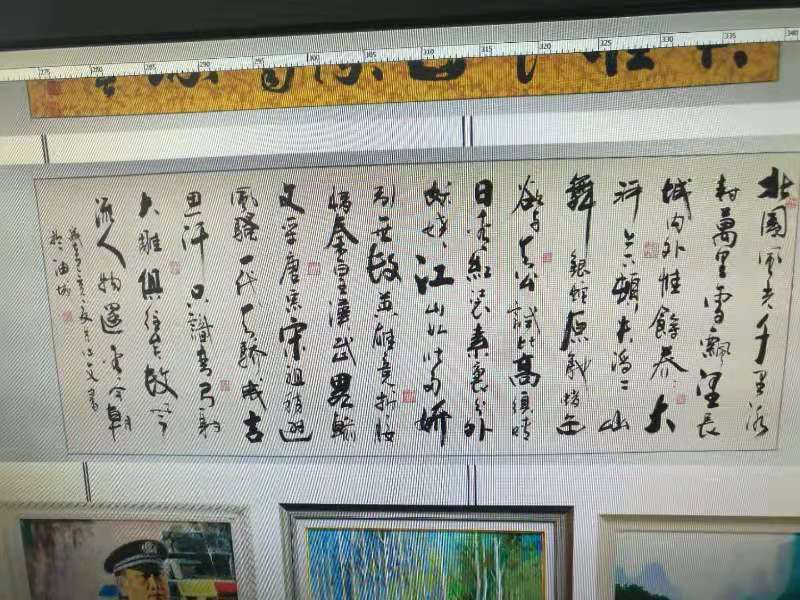 275 280 285 290 295 300 305 310 315 320 325 330 335 340
北國風光千里冰
封萬里雪飄望長
城内外惟餘莽々大
河上下頓失滔々山
舞銀蛇原馳蠟象
欲与天公試比高須晴
日看紅裝素裹分外
妖嬈江山如此多嬌
引無數英雄竞折腰
惜秦皇漢武略輸
文采唐宗宋祖稍遜
風騷一代天驕成吉
思汗只識彎弓射
大雕俱往矣數風
流人物還看今朝